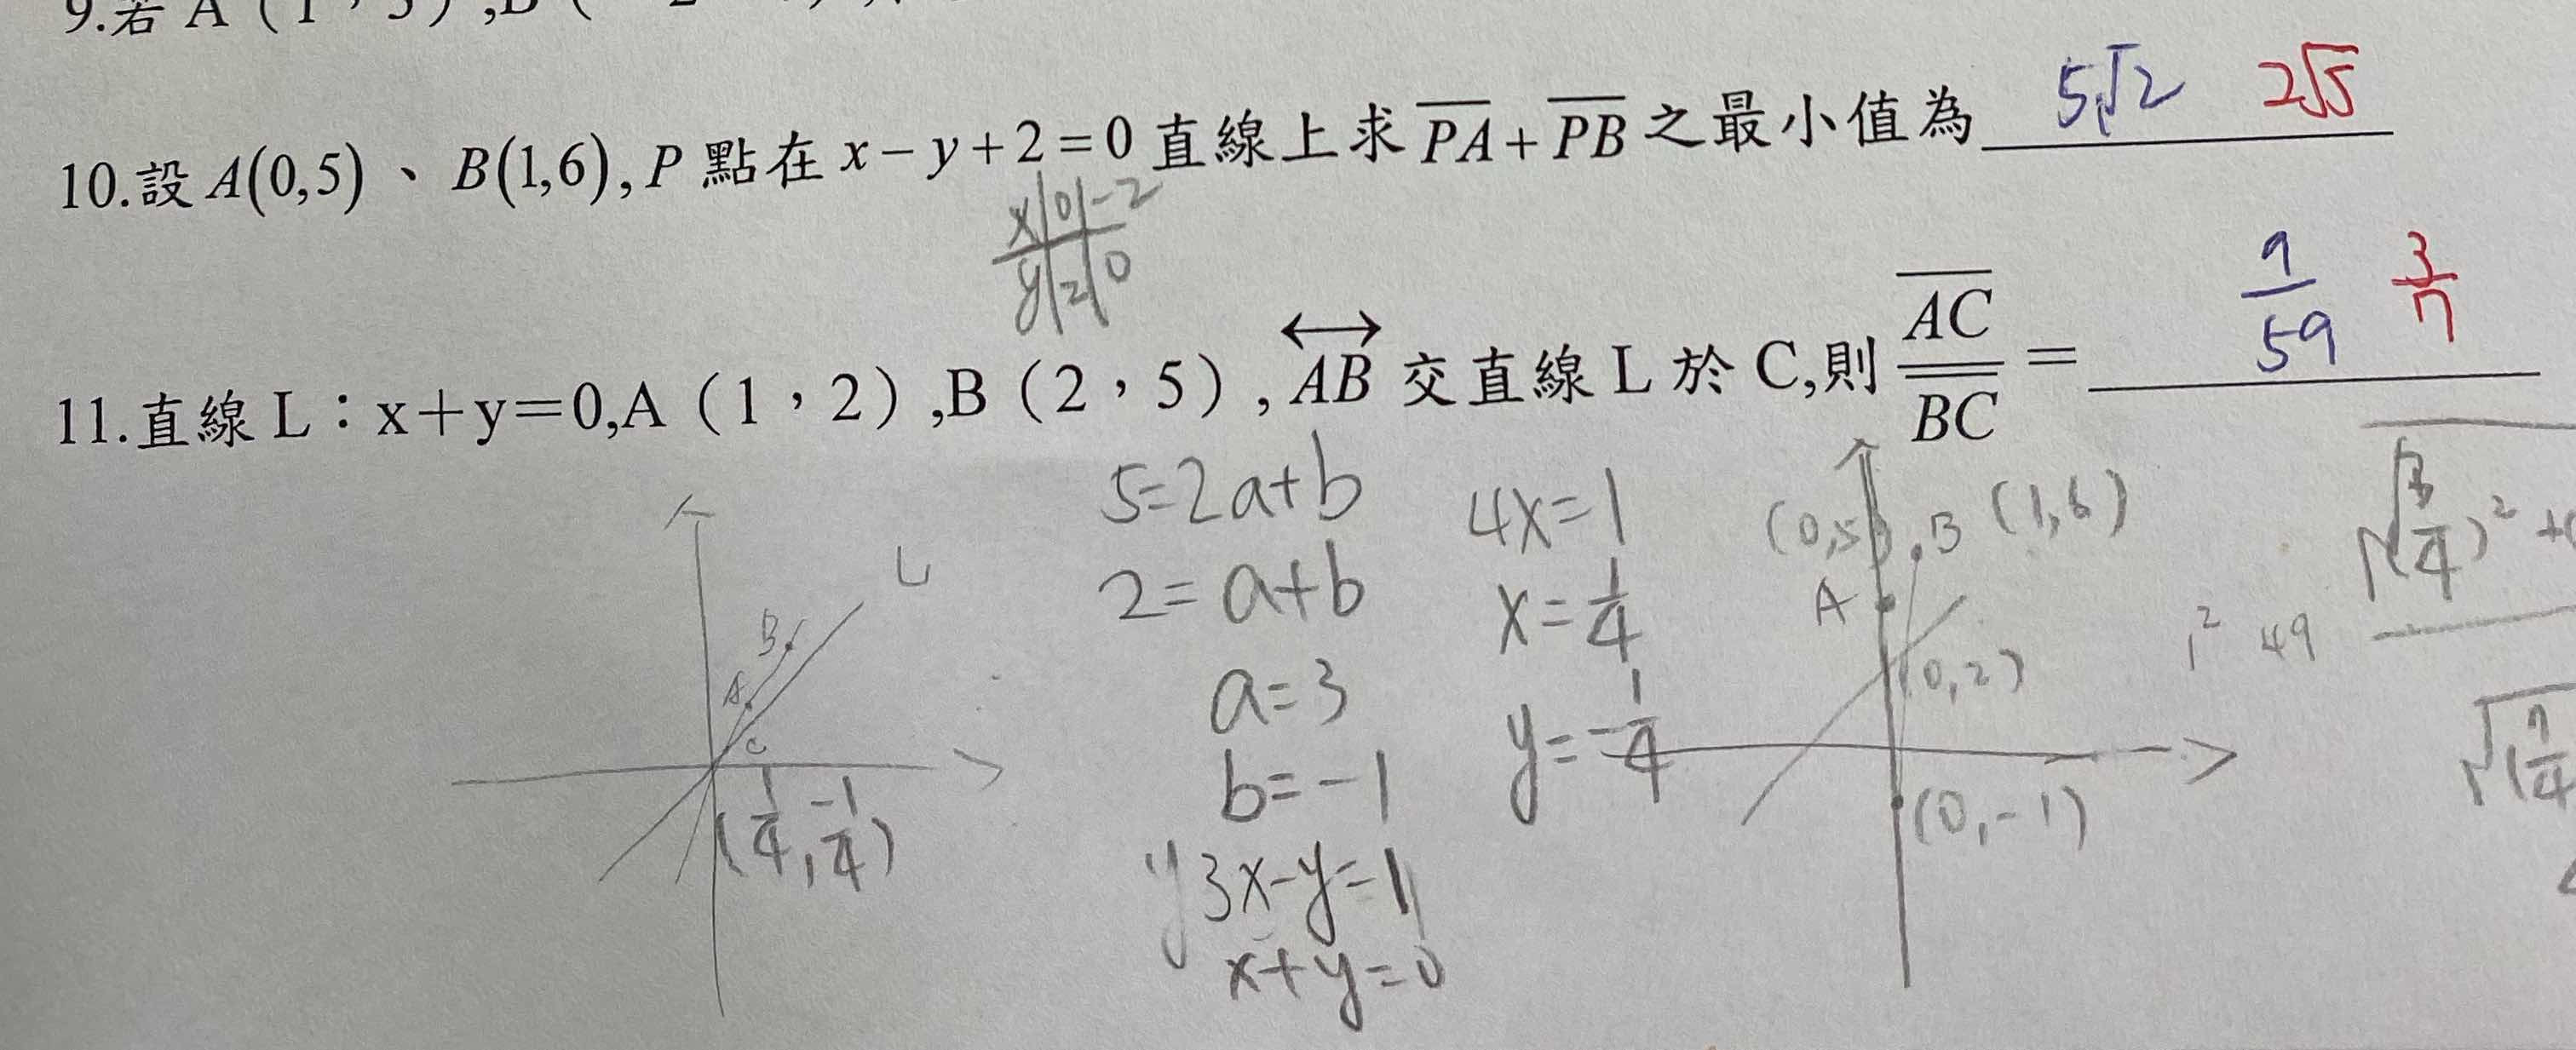 9.若 A（1，
10.設 A(0,5) 、 B(1,6), P 點在 x − y + 2 = 0 直線上求 PA + PB 之最小值為 5√2 2√5
x 0 -2
y 2 0
11.直線 L：x＋y＝0,A（1，2）,B（2，5）, AB 交直線 L 於 C,則 AC/BC = 9/59 3/7
5=2a+b
2=a+b
a=3
b=-1
3x-y=1
x+y=0
4x=1
x=1/4
y=-1/4
L
B
A
C
(1/4, -1/4)
(0,5) B (1,6)
A
(0,2)
(0,-1)
1² 49